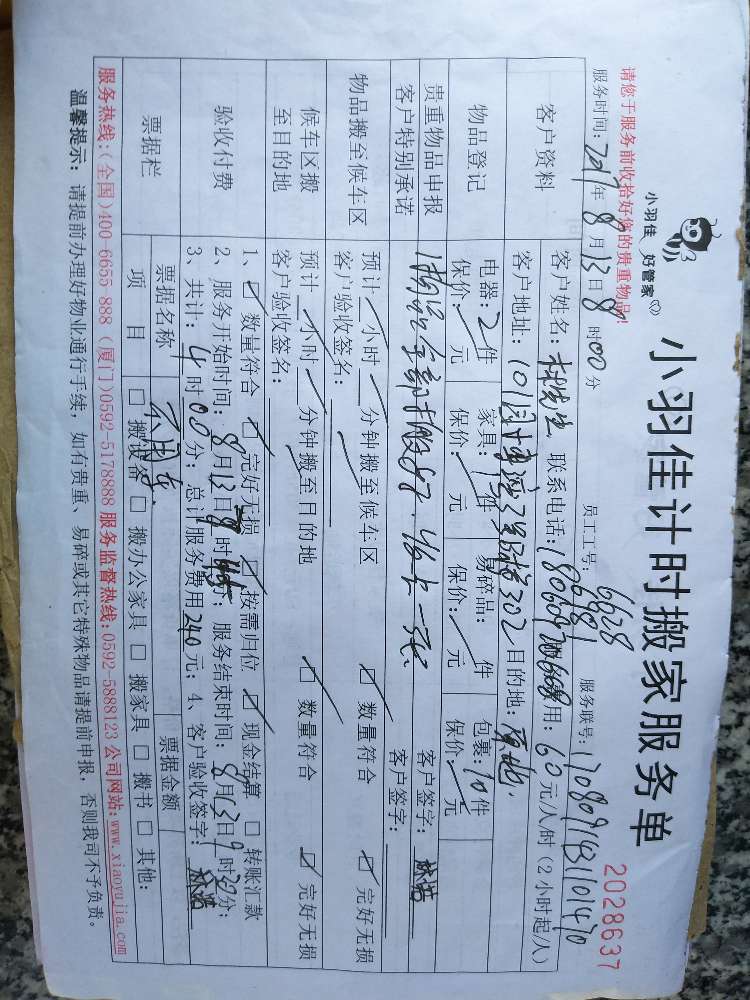 小羽佳 好管家
小羽佳计时搬家服务单
2028637
请您于服务前收拾好您的贵重物品!
员工工号: 6628
服务联号:
服务时间: 2017年8月13日8时00分
客户资料
客户姓名: 林先生 联系电话: 费用: 60元/人/时(2小时起/人)
客户地址: 302 目的地: 原地
物品登记
电器: 2件 家具: 1件 易碎品: 件 包裹: 10件
保价: 元 保价: 元 保价: 元 保价: 元
贵重物品申报
客户特别承诺
客户签字:
客户签字:
物品搬至候车区
预计 小时 分钟搬至候车区 ☑ 数量符合 ☑ 完好无损
客户验收签名:
候车区搬
至目的地
预计 小时 分钟搬至目的地 ☑ 数量符合 ☑ 完好无损
客户验收签名:
验收付费
1、☑ 数量符合 ☑ 完好无损 ☑ 按需归位 ☑ 现金结算 □ 转账汇款
2、服务开始时间: 8月13日 时 分; 服务结束时间: 8月13日9时30分;
3、共计: 4时00分; 总计服务费用240元; 4、客户验收签字:
票据栏
票据名称 票据金额
项目 □ 搬设备 □ 搬办公家具 □ 搬家具 □ 搬书 □ 其他:
服务热线:(全国)400-6655 888 (厦门)0592-5178888 服务监督热线:0592-5888123 公司网站:www.xiaoyujia.com
温馨提示: 请提前办理好物业通行手续, 如有贵重、易碎或其它特殊物品请提前申报, 否则我司不予负责。